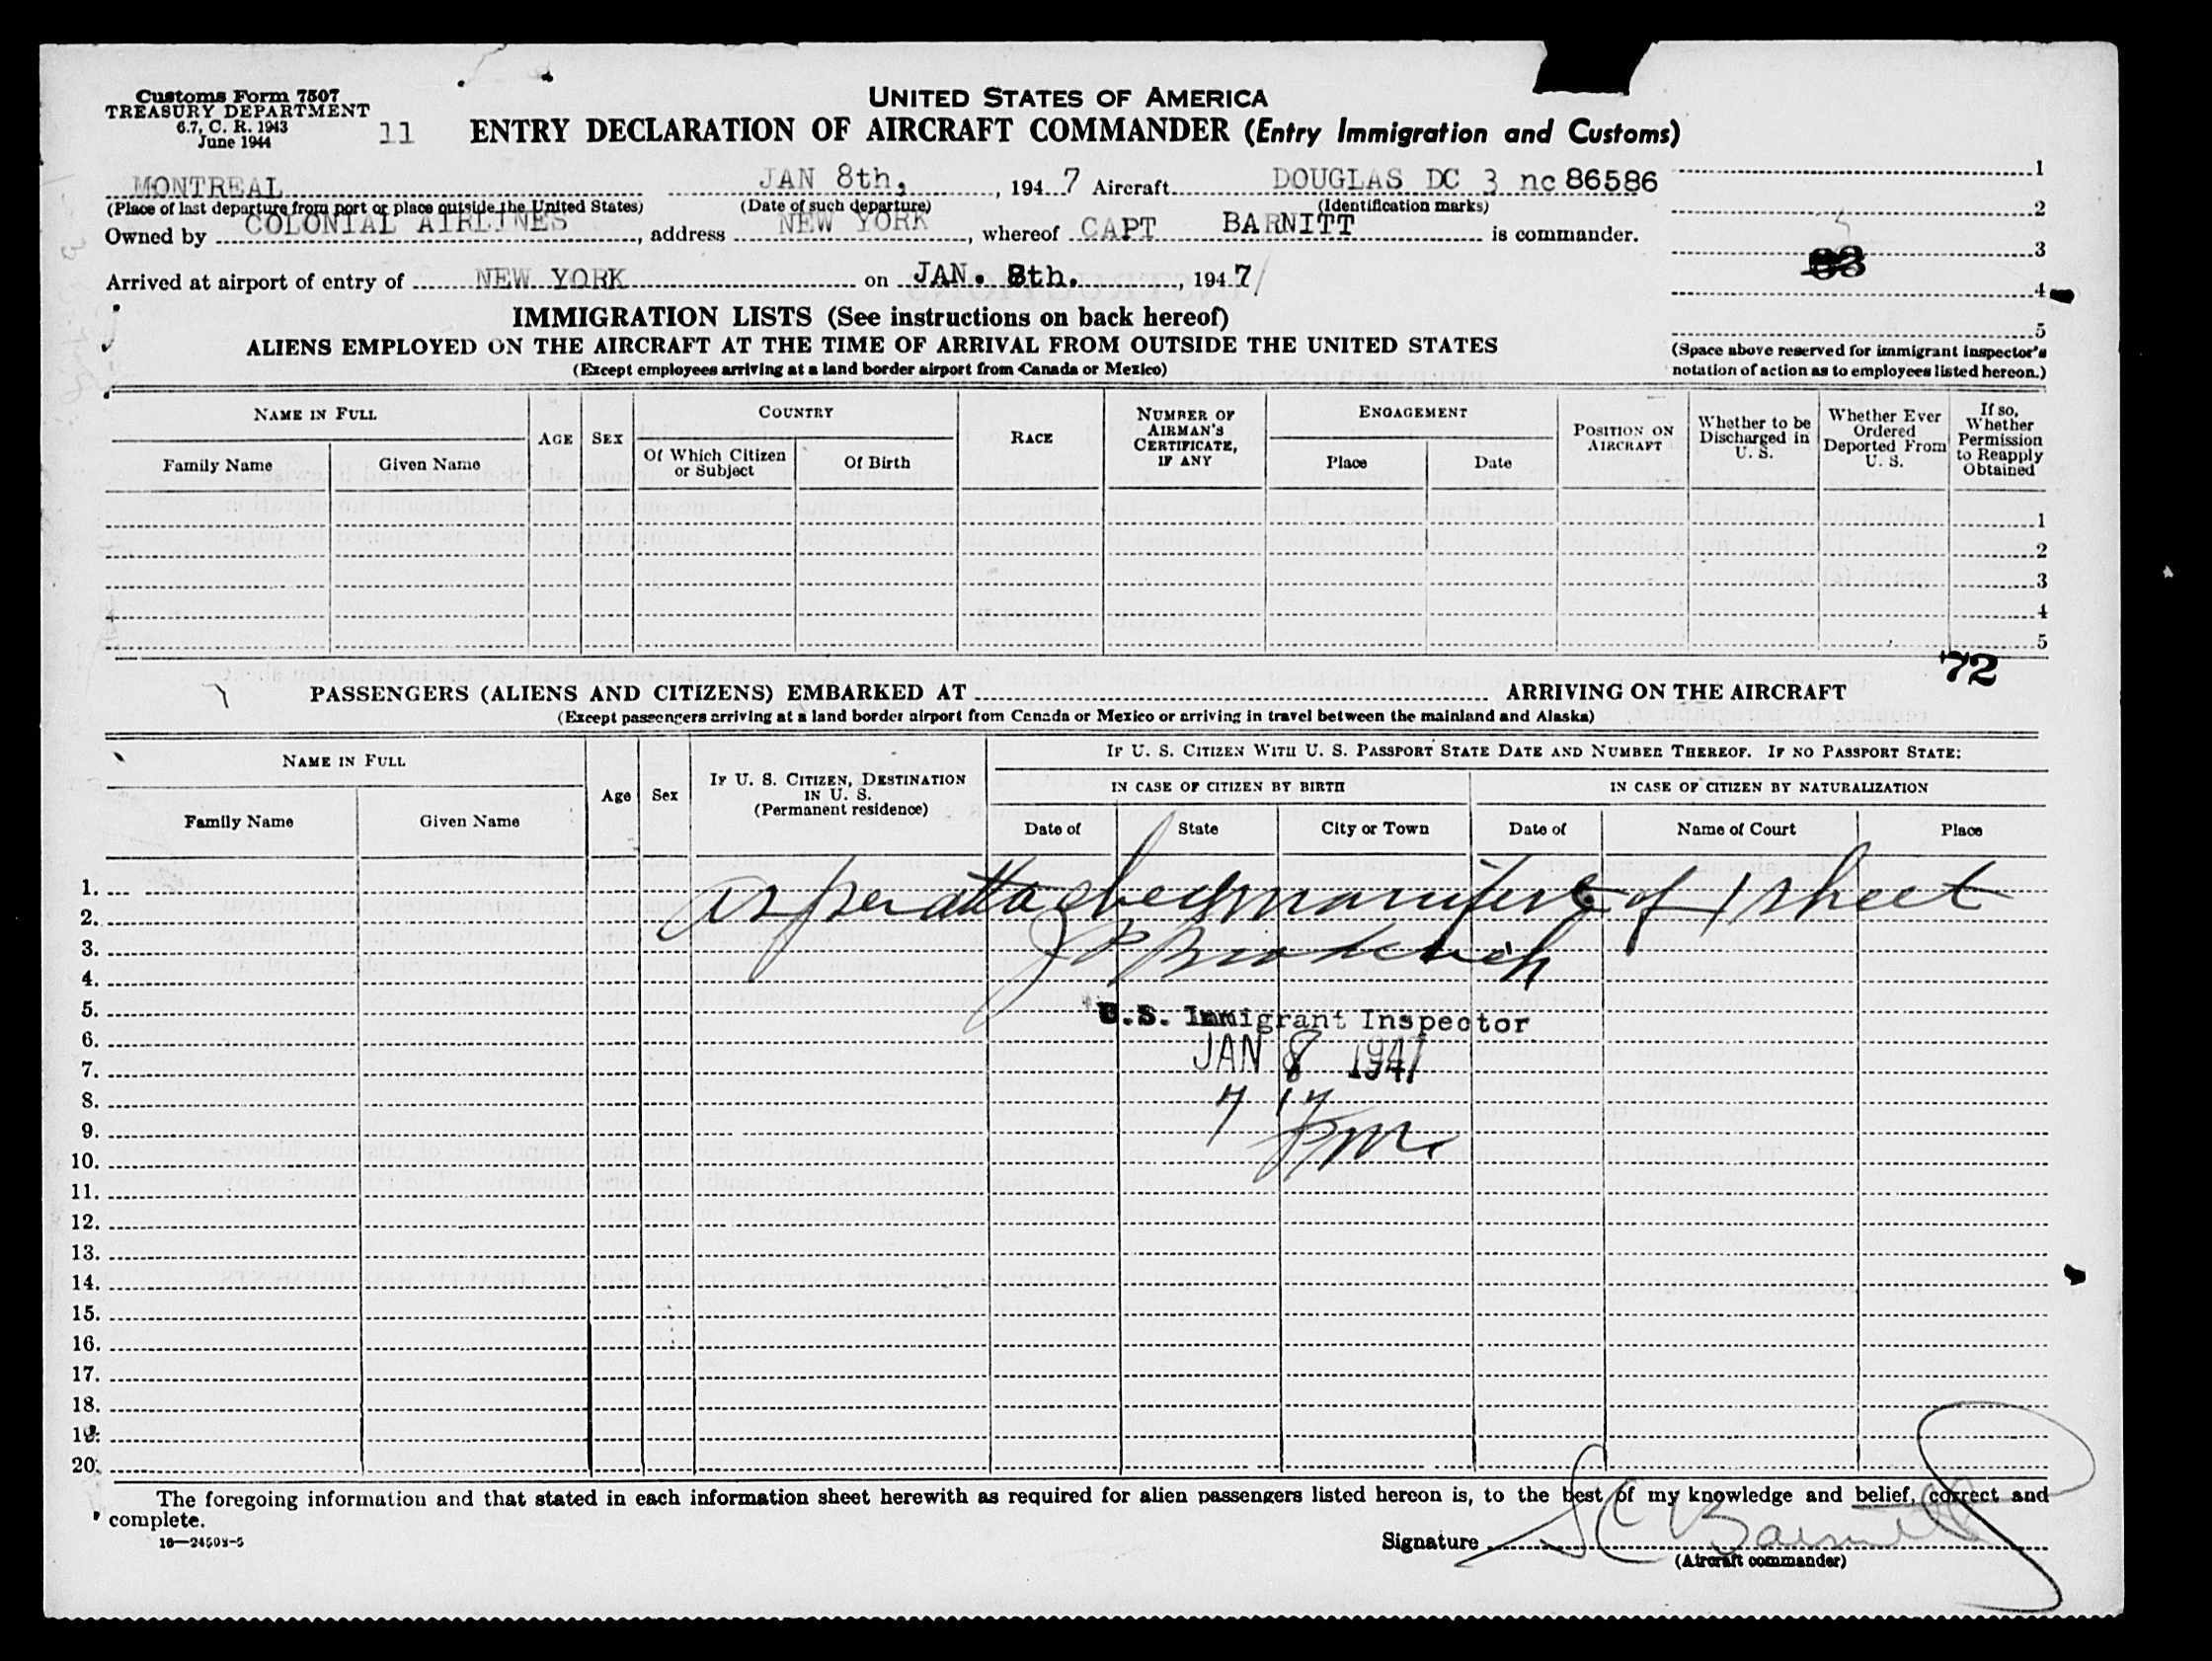 Customs Form 7507
TREASURY DEPARTMENT
6.7, C. R. 1943
June 1944
11
UNITED STATES OF AMERICA
ENTRY DECLARATION OF AIRCRAFT COMMANDER (Entry Immigration and Customs)
MONTREAL JAN 8th, , 194 7 Aircraft DOUGLAS DC 3 nc 86586
(Place of last departure from port or place outside the United States) (Date of such departure) (Identification marks)
Owned by COLONIAL AIRLINES , address NEW YORK , whereof CAPT BARNITT is commander.
Arrived at airport of entry of NEW YORK on JAN. 8th. , 194 7
1
2
3
4
5
(Space above reserved for immigrant inspector's
notation of action as to employees listed hereon.)
IMMIGRATION LISTS (See instructions on back hereof)
ALIENS EMPLOYED ON THE AIRCRAFT AT THE TIME OF ARRIVAL FROM OUTSIDE THE UNITED STATES
(Except employees arriving at a land border airport from Canada or Mexico)
NAME IN FULL
Family Name Given Name
AGE SEX
COUNTRY
Of Which Citizen
or Subject
Of Birth
RACE
NUMBER OF
AIRMAN'S
CERTIFICATE,
IF ANY
ENGAGEMENT
Place Date
POSITION ON
AIRCRAFT
Whether to be
Discharged in
U. S.
Whether Ever
Ordered
Deported From
U. S.
If so,
Whether
Permission
to Reapply
Obtained
1
2
3
4
5
72
PASSENGERS (ALIENS AND CITIZENS) EMBARKED AT ARRIVING ON THE AIRCRAFT
(Except passengers arriving at a land border airport from Canada or Mexico or arriving in travel between the mainland and Alaska)
NAME IN FULL
Family Name Given Name
Age Sex
IF U. S. CITIZEN, DESTINATION
IN U. S.
(Permanent residence)
IF U. S. CITIZEN WITH U. S. PASSPORT STATE DATE AND NUMBER THEREOF. IF NO PASSPORT STATE:
IN CASE OF CITIZEN BY BIRTH IN CASE OF CITIZEN BY NATURALIZATION
Date of State City or Town Date of Name of Court Place
as per attached manifest of 1 sheet
U.S. Immigrant Inspector
JAN 8 1947
7 17
pm.
1.
2.
3.
4.
5.
6.
7.
8.
9.
10.
11.
12.
13.
14.
15.
16.
17.
18.
19.
20.
The foregoing information and that stated in each information sheet herewith as required for alien passengers listed hereon is, to the best of my knowledge and belief, correct and
complete.
16—24509-5
Signature S C Barnitt
(Aircraft commander)